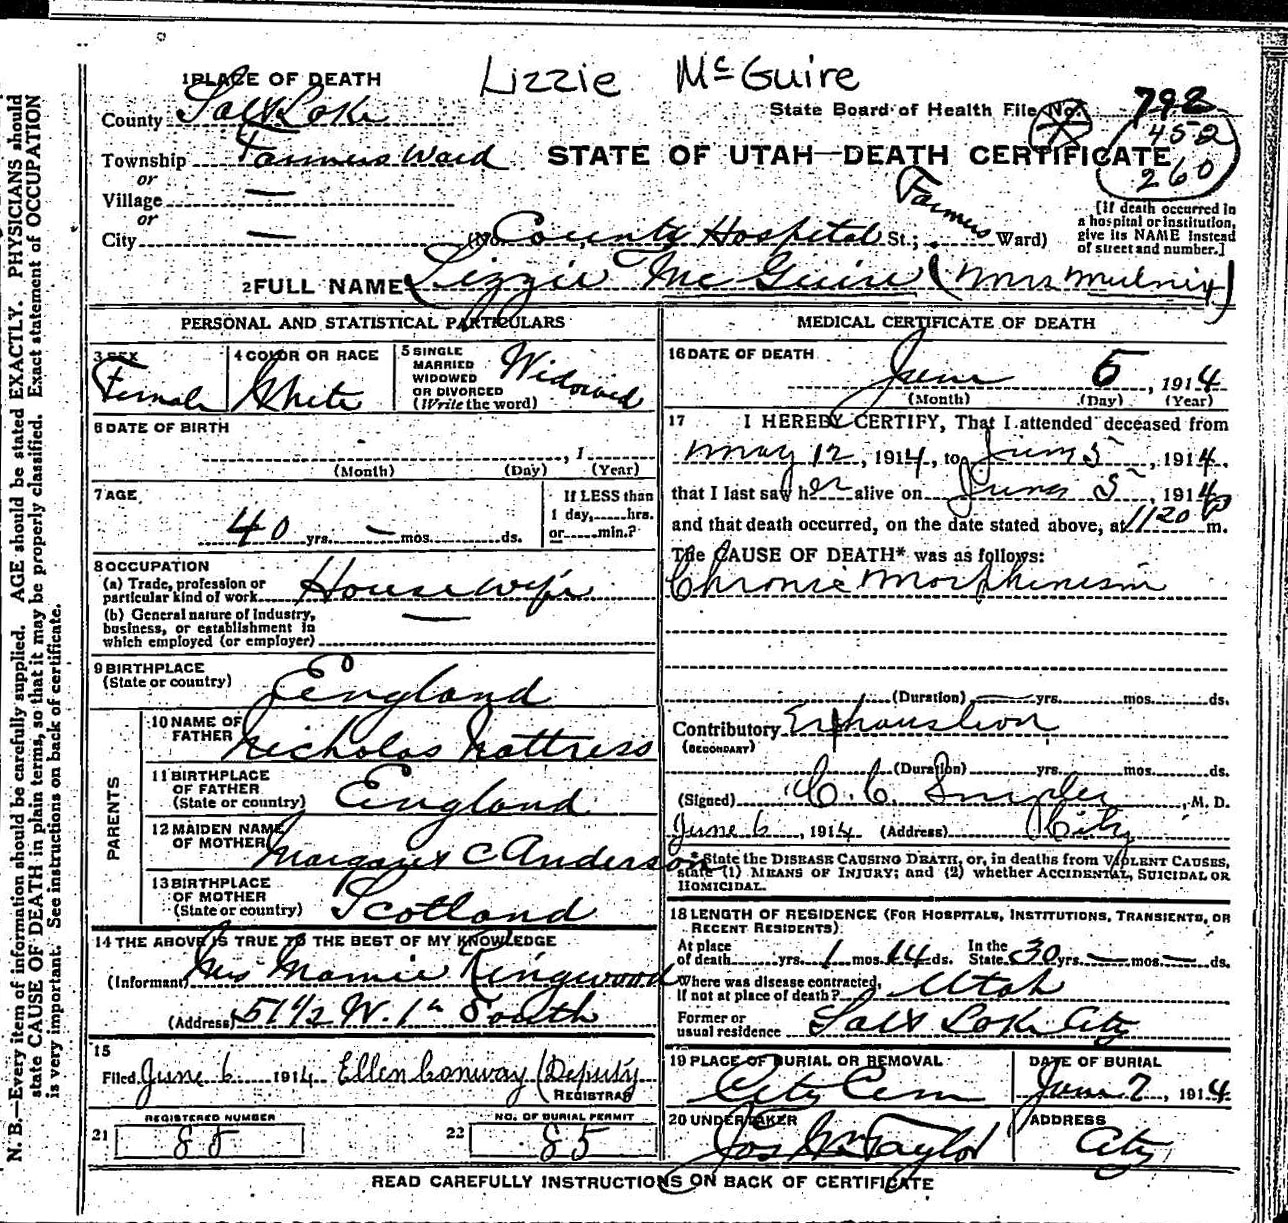 Lizzie McGuire
1 PLACE OF DEATH
County Salt Lake
State Board of Health File No. 792
452
260
Township Farmers Ward
STATE OF UTAH—DEATH CERTIFICATE
or
Village —
or
City — (No. County Hospital St.; Farmers Ward)
[If death occurred in
a hospital or institution,
give its NAME instead
of street and number.]
2 FULL NAME Lizzie McGuire (Mrs
PERSONAL AND STATISTICAL PARTICULARS
3 SEX
Female
4 COLOR OR RACE
White
5 SINGLE
MARRIED
WIDOWED
OR DIVORCED
(Write the word)
Widowed
6 DATE OF BIRTH
, 1
(Month) (Day) (Year)
7 AGE
40 yrs. — mos. ds.
If LESS than
1 day, hrs.
or min.?
8 OCCUPATION
(a) Trade, profession or
particular kind of work Housewife
(b) General nature of industry,
business, or establishment in
which employed (or employer) —
9 BIRTHPLACE
(State or country) England
PARENTS
10 NAME OF
FATHER Nicholas Nattress
11 BIRTHPLACE
OF FATHER
(State or country) England
12 MAIDEN NAME
OF MOTHER Margaret C Anderson
13 BIRTHPLACE
OF MOTHER
(State or country) Scotland
14 THE ABOVE IS TRUE TO THE BEST OF MY KNOWLEDGE
(Informant) Mrs Mamie Ringwood
(Address) 51 1/2 W. 1st South
15
Filed June 6 1914 Ellen Conway (Deputy
REGISTRAR
REGISTERED NUMBER
21 88
NO. OF BURIAL PERMIT
22 85
MEDICAL CERTIFICATE OF DEATH
16 DATE OF DEATH
June 5, 1914
(Month) (Day) (Year)
17 I HEREBY CERTIFY, That I attended deceased from
May 12, 1914, to June 5, 1914.
that I last saw her alive on June 5, 1914
and that death occurred, on the date stated above, at 1120 P m.
The CAUSE OF DEATH* was as follows:
Chronic Morphinism
(Duration) — yrs. mos. ds.
Contributory Exhaustion
(SECONDARY)
(Duration) yrs. mos. ds.
(Signed) C. C. , M. D.
June 6, 1914 (Address) City
* State the DISEASE CAUSING DEATH, or, in deaths from VIOLENT CAUSES,
state (1) MEANS OF INJURY; and (2) whether ACCIDENTAL, SUICIDAL OR
HOMICIDAL.
18 LENGTH OF RESIDENCE (FOR HOSPITALS, INSTITUTIONS, TRANSIENTS, OR
RECENT RESIDENTS)
At place
of death yrs. 1 mos. 14 ds. In the
State 30 yrs. — mos. — ds.
Where was disease contracted,
if not at place of death? Utah
Former or
usual residence Salt Lake City
19 PLACE OF BURIAL OR REMOVAL
City Cem
DATE OF BURIAL
June 7, 1914
20 UNDERTAKER
Jos Wm Taylor
ADDRESS
City
READ CAREFULLY INSTRUCTIONS ON BACK OF CERTIFICATE
N. B.—Every item of information should be carefully supplied. AGE should be stated EXACTLY. PHYSICIANS should
state CAUSE OF DEATH in plain terms, so that it may be properly classified. Exact statement of OCCUPATION
is very important. See instructions on back of certificate.